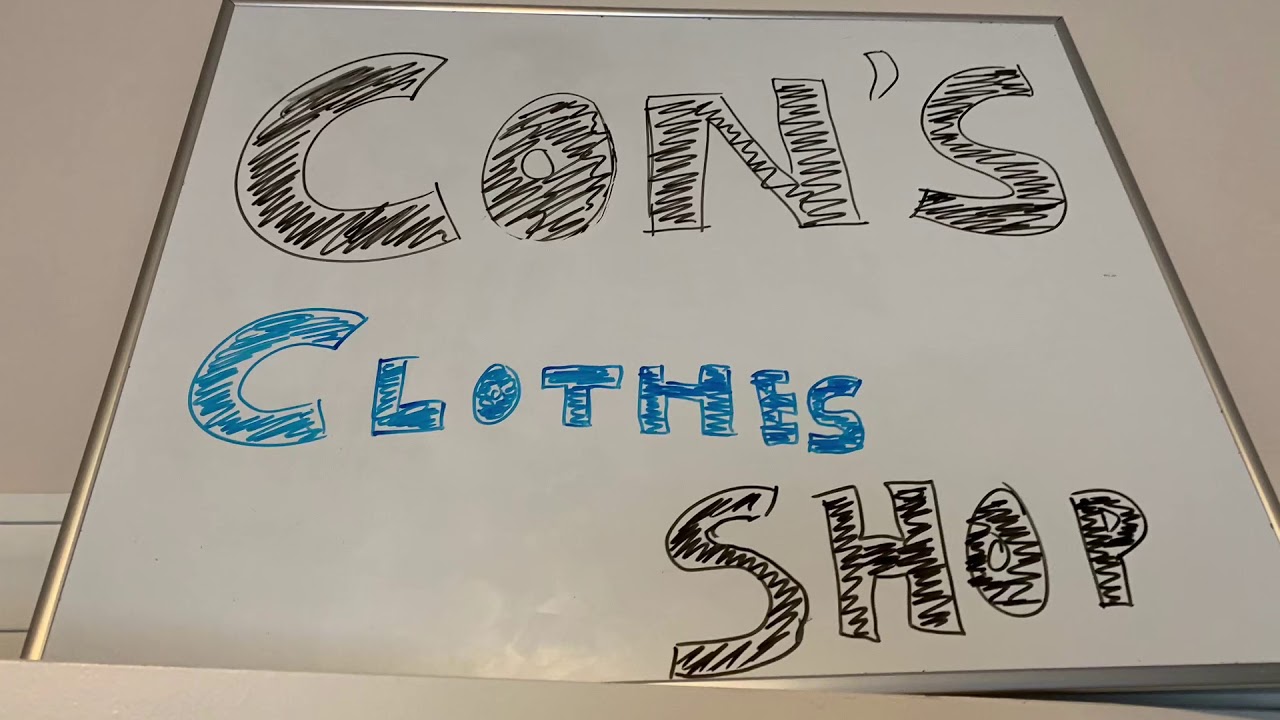 CON'S
CLOTHES
SHOP